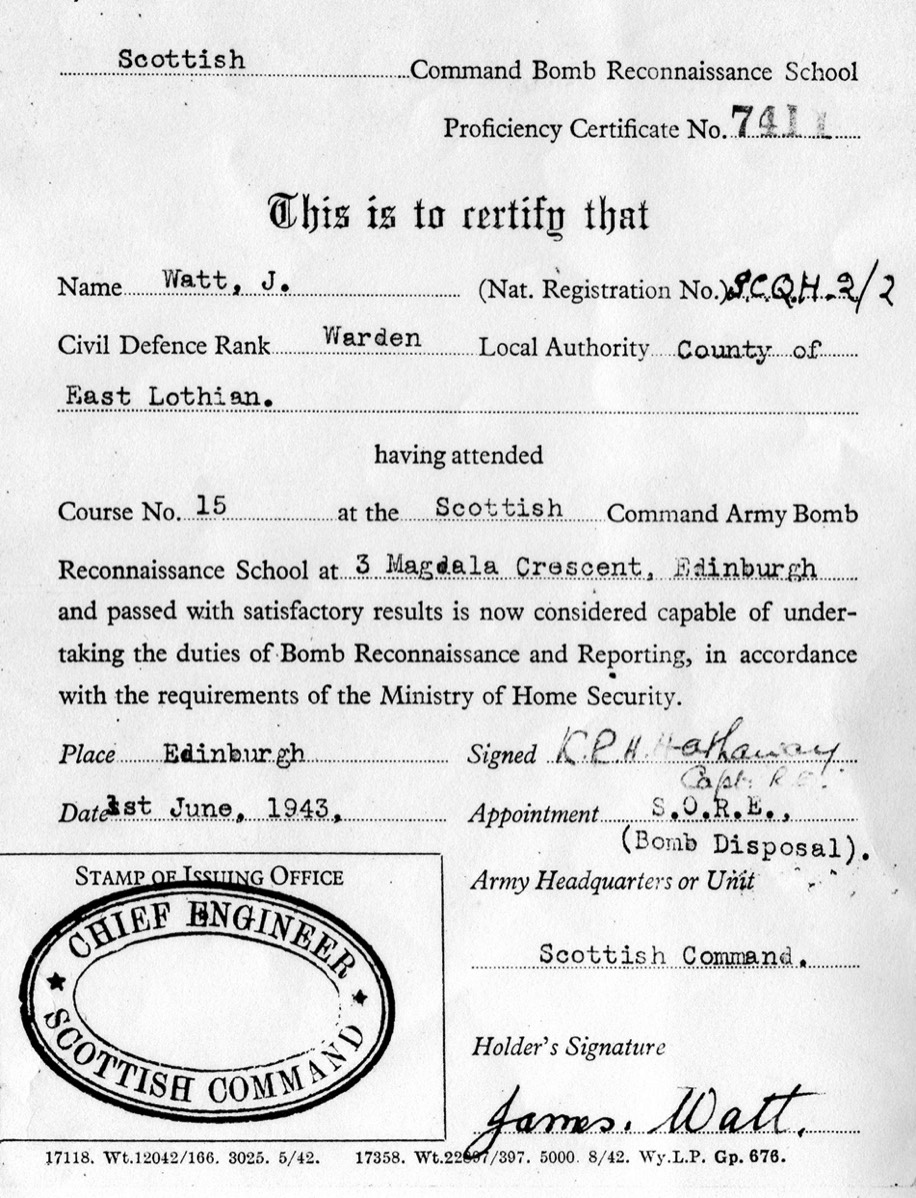 Scottish Command Bomb Reconnaissance School
Proficiency Certificate No. 741
This is to certify that
Name Watt, J. (Nat. Registration No.) S.C.Q.H. 2/2
Civil Defence Rank Warden Local Authority County of
East Lothian.
having attended
Course No. 15 at the Scottish Command Army Bomb
Reconnaissance School at 3 Magdala Crescent, Edinburgh
and passed with satisfactory results is now considered capable of under-
taking the duties of Bomb Reconnaissance and Reporting, in accordance
with the requirements of the Ministry of Home Security.
Place Edinburgh Signed K.P.H. Hathaway
Capt. R.E.
Date 1st June, 1943, Appointment S.O.R.E.,
(Bomb Disposal).
STAMP OF ISSUING OFFICE
Army Headquarters or Unit
CHIEF ENGINEER
SCOTTISH COMMAND
Scottish Command.
Holder's Signature
James. Watt.
17118. Wt.12042/166. 3025. 5/42. 17358. /397. 5000. 8/42. Wy.L.P. Gp. 676.